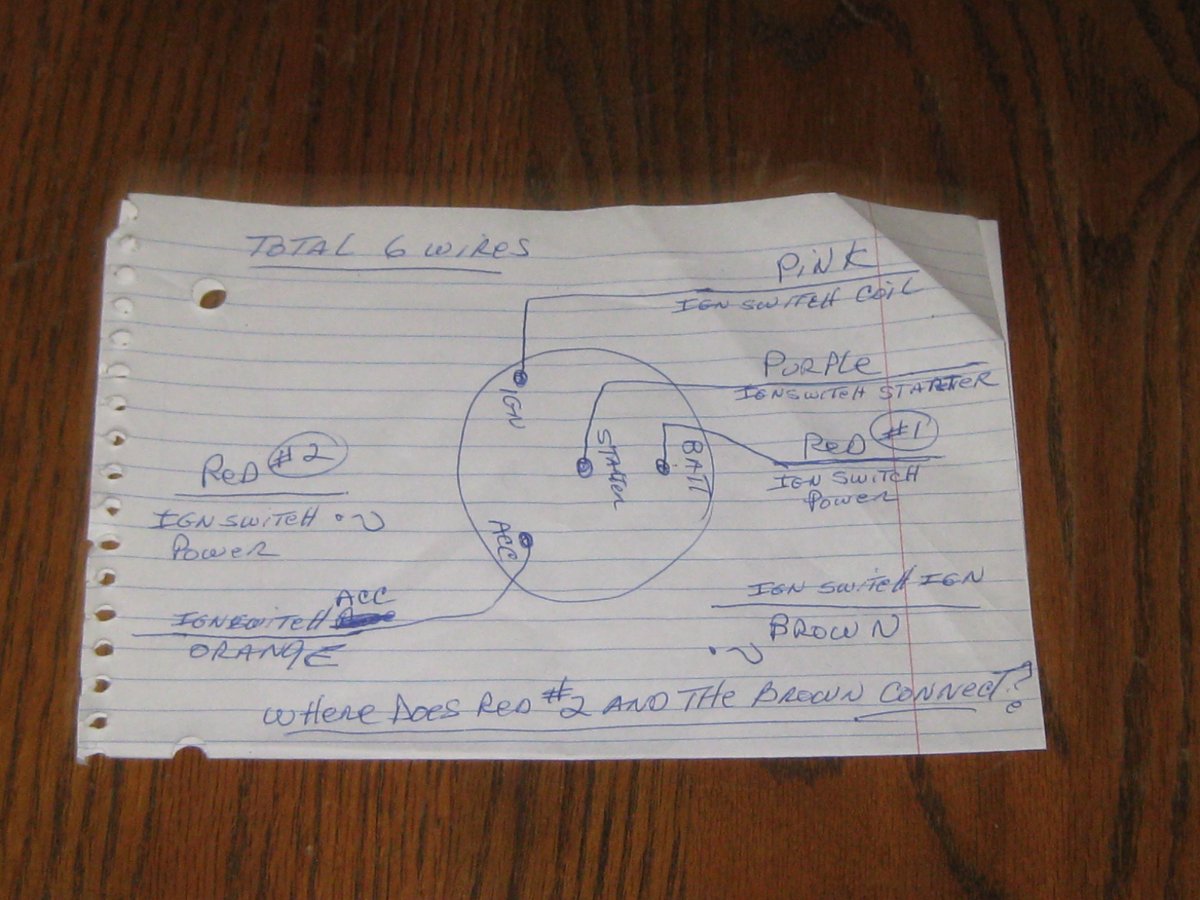 TOTAL 6 WIRES
PINK
IGN SWITCH COIL
PURPLE
IGN SWITCH STARTER
IGN
STARTER
BATT
RED #1
IGN SWITCH
POWER
RED #2
IGN SWITCH
POWER
ACC
IGN SWITCH ACC
ORANGE
IGN SWITCH IGN
BROWN
WHERE DOES RED #2 AND THE BROWN CONNECT?